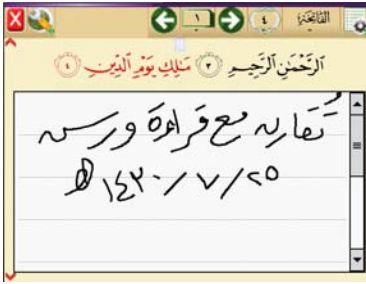 الفاتحة ٤ ١
الرَّحْمَٰنِ الرَّحِيمِ ٣ مَٰلِكِ يَوْمِ ٱلدِّينِ ٤
تُقارن مع قراءة ورش
١٤٣٠/٧/٢٥ هـ